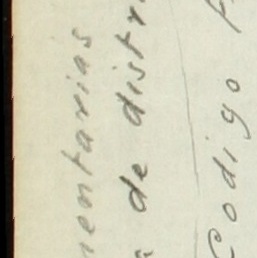 mentarias
de distr
Codigo